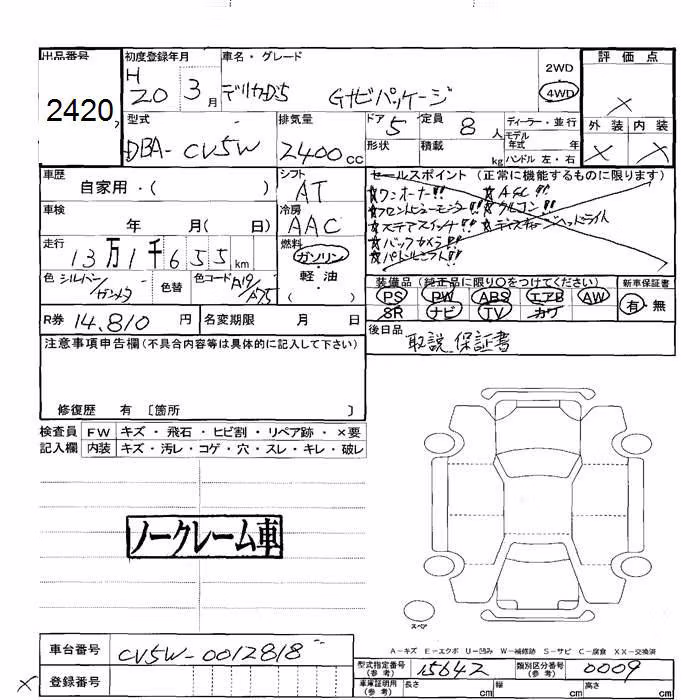 出品番号 初度登録年月 車名・グレード 評価点
2420 H 20 3月 デリカD5 Gナビパッケージ 2WD 4WD ×
型式 排気量 ドア 5 定員 8人 ディーラー・並行 外装 内装
DBA-CV5W 2400cc 形状 積載 kg モデル年式 年 ハンドル 左・右 × ×
車歴 シフト セールスポイント (正常に機能するものに限ります)
自家用・( ) AT ☆ワンオーナー!! ☆ASC!!
車検 冷房 ☆フロントビューモニター!! ☆クルコン!!
年 月( 日) AAC ☆ステアスイッチ!! ☆ディスチャージヘッドライト
走行 燃料 ☆バックカメラ!!
13万1千655km ガソリン ☆パドルシフト!!
色 シルバー/ガンメタ 色替 色コード A19/A75 ・軽油・( ) 装備品 (純正品に限り○をつけてください) 新車保証書
PS PW ABS エアB AW 有・無
R券 14,810円 名変期限 月 日 SR ナビ TV カワ
注意事項申告欄(不具合内容等は具体的に記入して下さい) 後日品
取説 保証書
修復歴 有 [箇所 ]
検査員 FW キズ・飛石・ヒビ割・リペア跡・×要
記入欄 内装 キズ・汚レ・コゲ・穴・スレ・キレ・破レ
ノークレーム車
スペア
A-キズ E-エクボ U-凹み W-補修跡 S-サビ C-腐食 XX-交換済
車台番号 CV5W-0012818 型式指定番号(参考) 15642 類別区分番号(参考) 0009
× 登録番号 車庫証明用(参考) 長さ cm 幅 cm 高さ cm